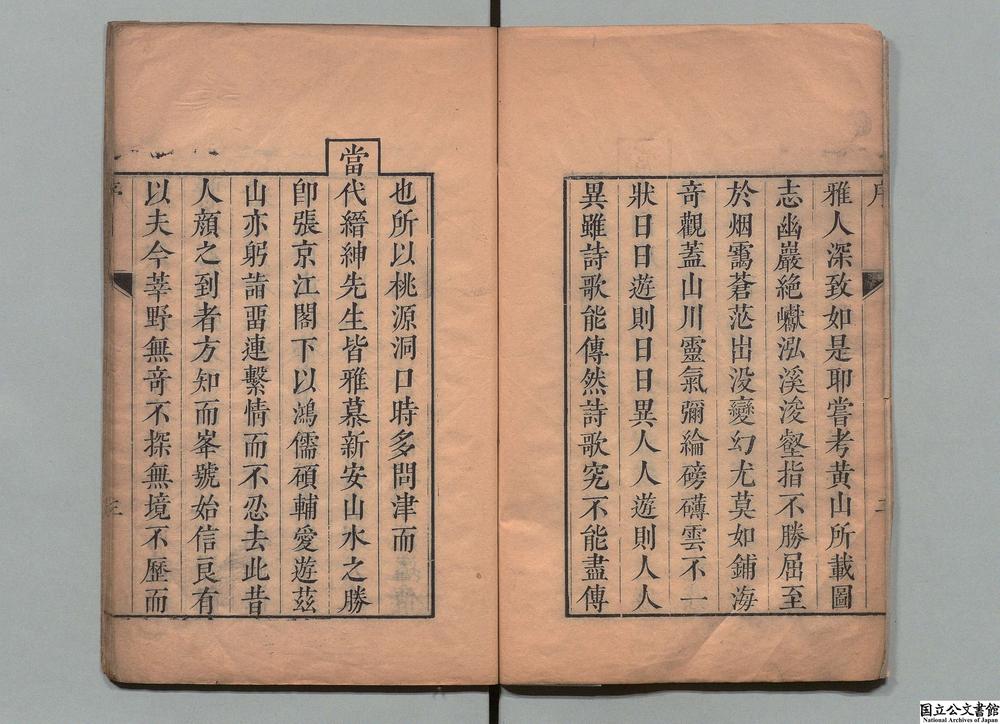 序
雅人深致如是耶嘗考黃山所載圖
志幽巖絶巘泓溪浚壑指不勝屈至
於烟靄蒼茫出没變幻尤莫如鋪海
奇觀蓋山川靈氣彌綸磅礡雲不一
狀日日遊則日日異人人遊則人人
異雖詩歌能傳然詩歌究不能盡傳
也所以桃源洞口時多問津而
當代縉紳先生皆雅慕新安山水之勝
卽張京江閣下以鴻儒碩輔愛遊茲
山亦躬請畱連繫情而不忍去此昔
人顏之到者方知而峯號始信良有
以夫今莘野無奇不探無境不歷而
三
国立公文書館
National Archives of Japan